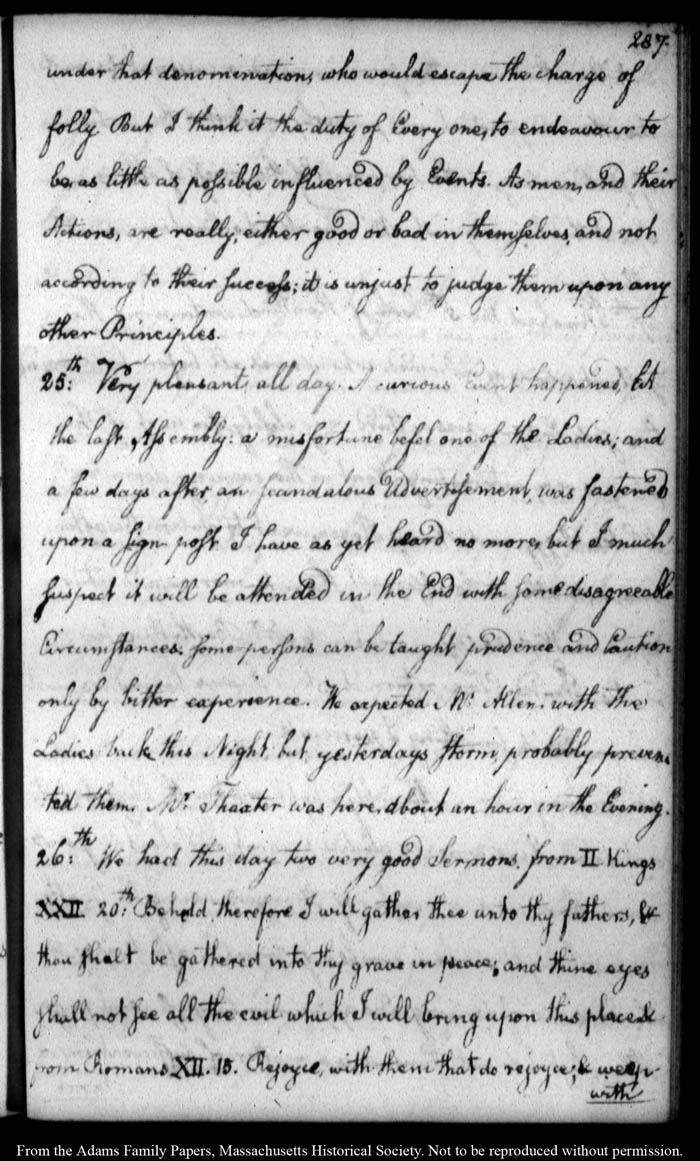 287.
under that denomination, who would escape the charge of
folly. But I think it the duty of Every one, to endeavour to
be, as little as possible influenced by Events. As men, and their
Actions, are really, either good or bad in themselves, and not
according to their success; it is unjust to judge them upon any
other Principles.
25:th Very pleasant, all day. A curious Event happened, at
the last, Assembly: a misfortune befel one of the Ladies; and
a few days after, an scandalous Advertisement, was fastened
upon a sign post. I have as yet heard no more, but I much
suspect it will be attended in the End with some disagreeable
Circumstances. some persons can be taught prudence and Caution
only by bitter experience. We expected Mr. Allen. with the
Ladies back this Night, but yesterdays storm, probably preven
ted them. Mr. Thaxter was here, about an hour in the Evening.
26:th We had this day two very good Sermons, from II Kings
XXII 20:th Behold, therefore I will gather thee unto thy fathers, &
thou shalt be gathered into thy grave in peace; and thine eyes
shall not see all the evil which I will bring upon this place &
from Romans XII. 15. Rejoyce, with them that do rejoyce, & weep
with
From the Adams Family Papers, Massachusetts Historical Society. Not to be reproduced without permission.